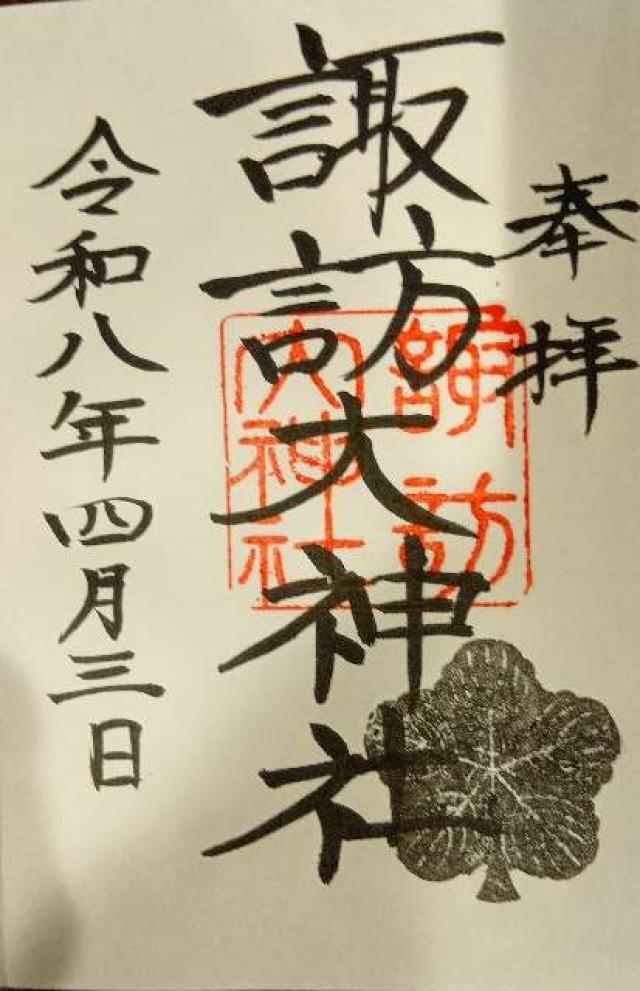 奉拝
諏訪大神社
諏訪
大神社
令和八年四月三日